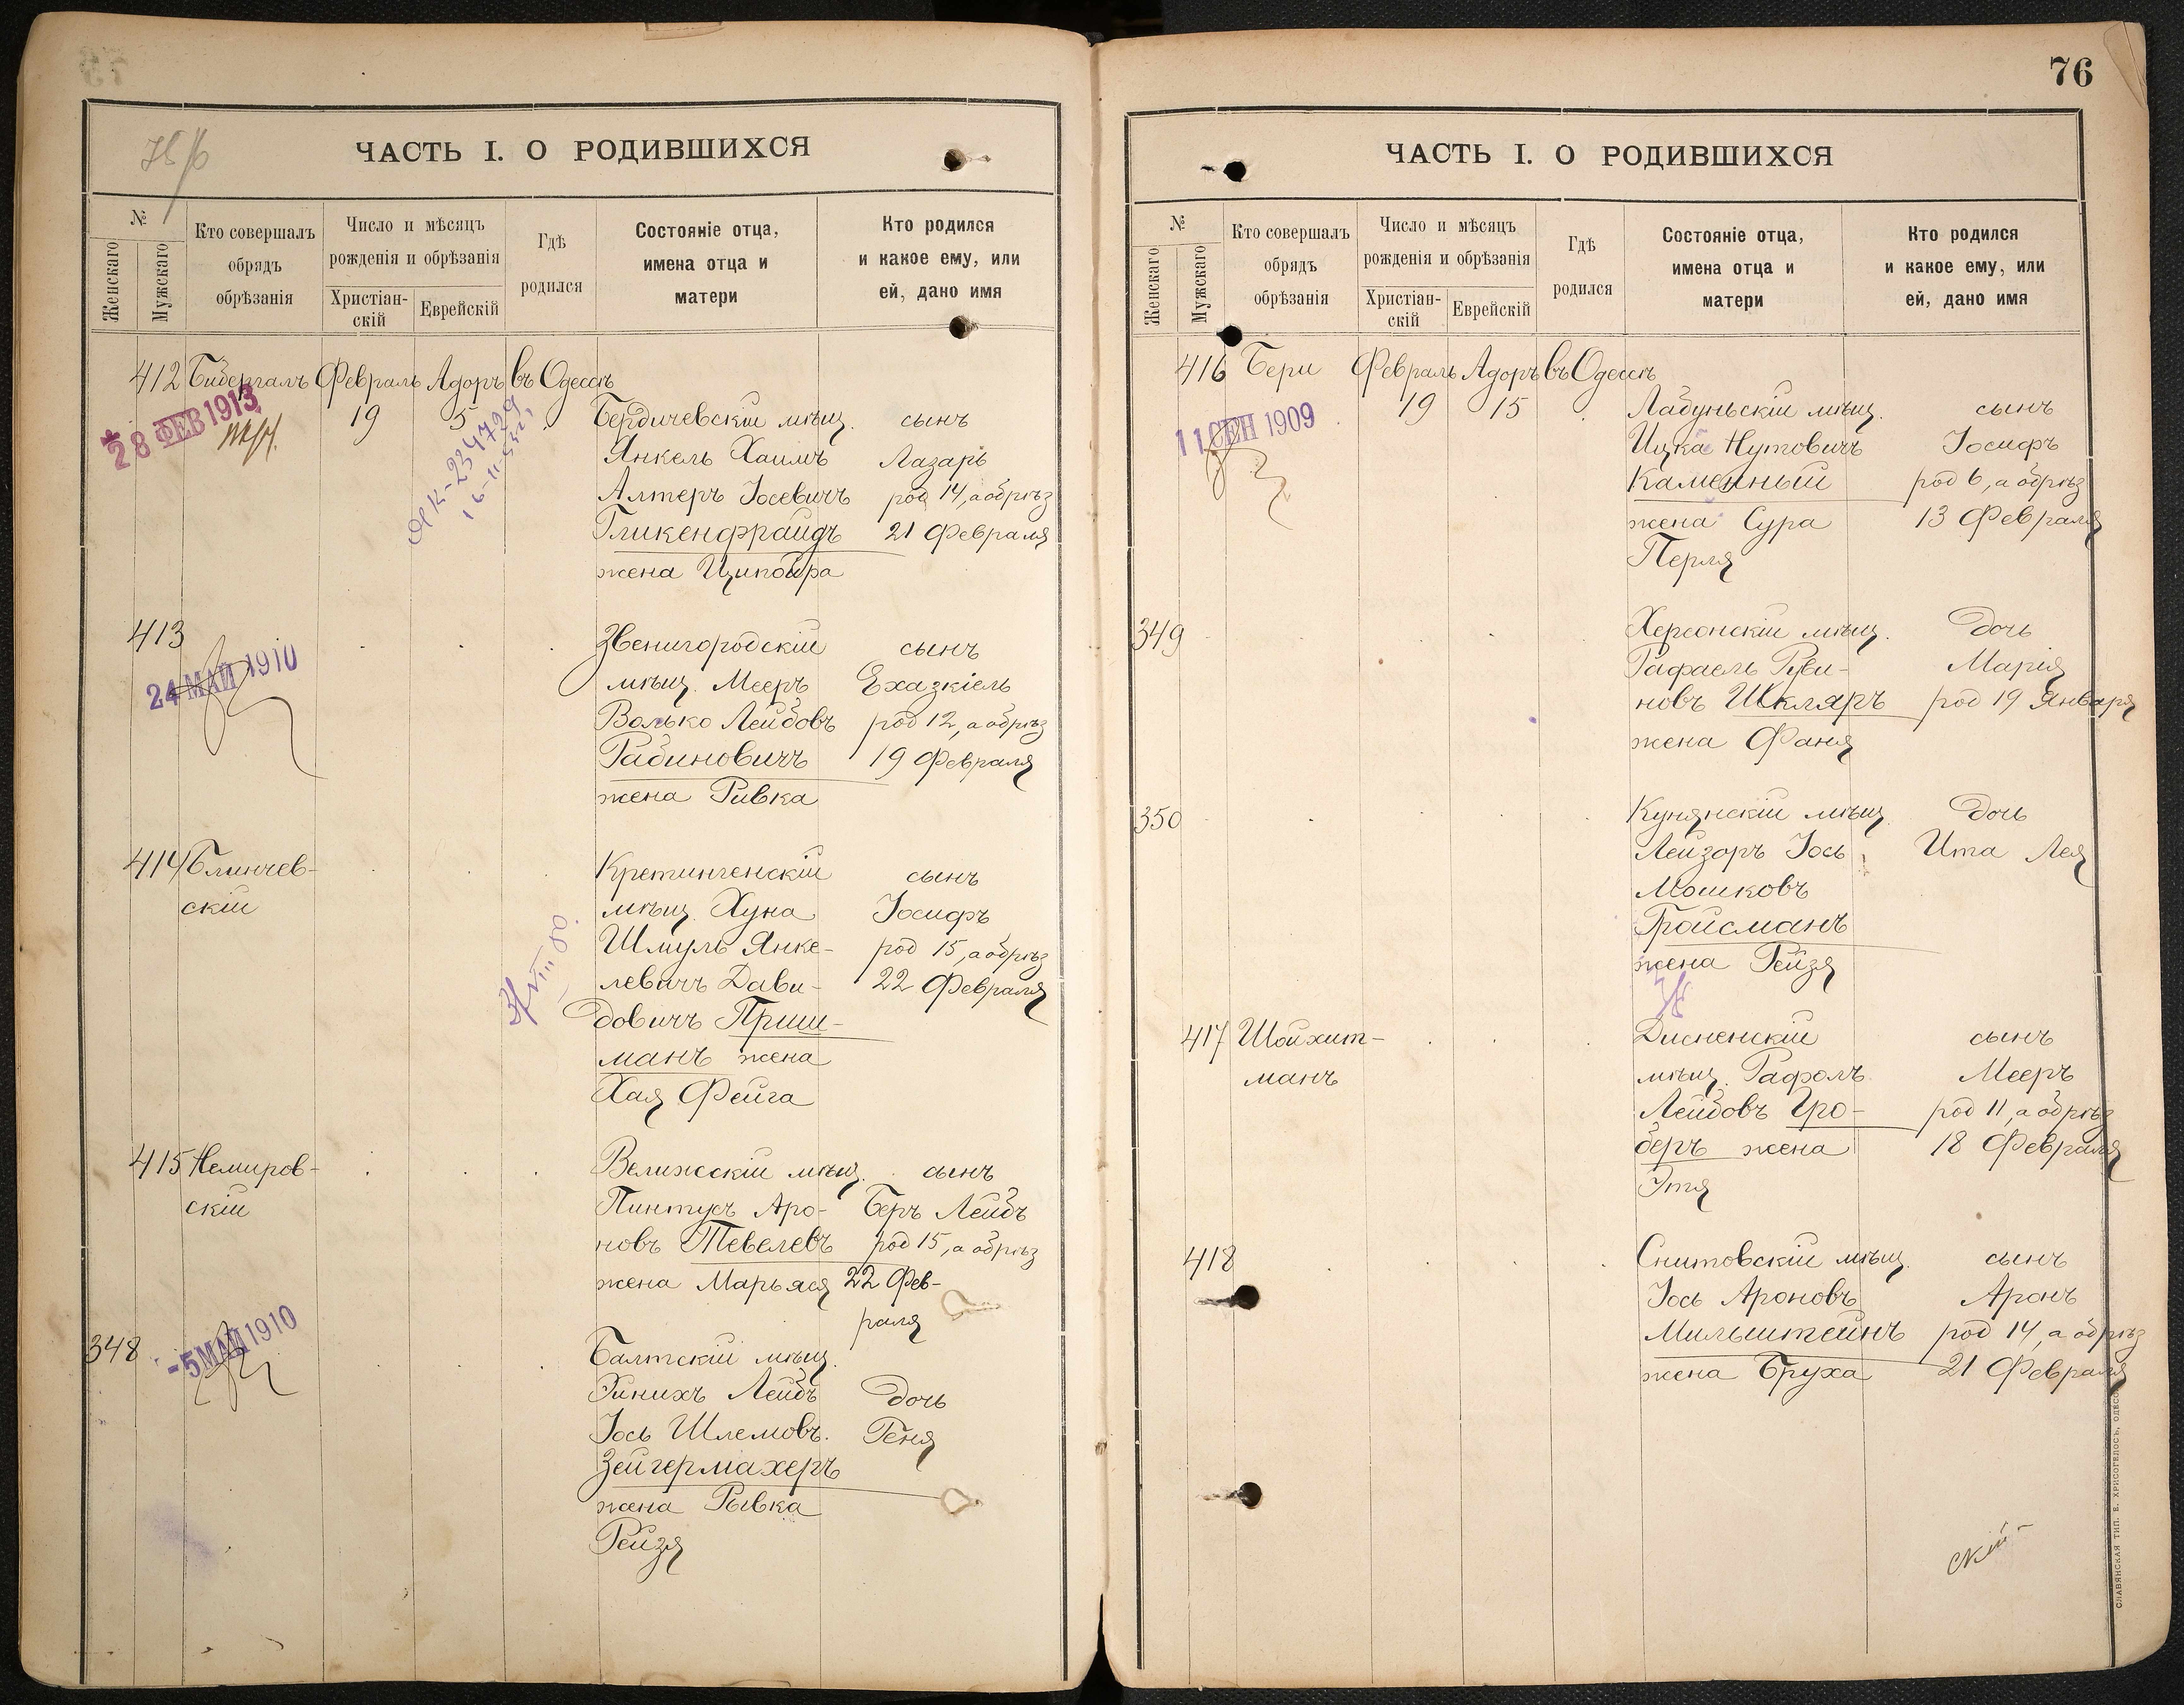 ЧАСТЬ I. О РОДИВШИХСЯ
№
Женскаго
Мужскаго
Кто совершалъ
обрядъ
обрѣзанія
Число и мѣсяцъ
рожденія и обрѣзанія
Христіан-
скій
Еврейскій
Гдѣ
родился
Состояніе отца,
имена отца и
матери
Кто родился
и какое ему, или
ей, дано имя
412 Бибергалъ Февраль Адоръ въ Одессѣ
28 ФЕВ 1913
19 5 Бердичевскій мѣщ. сынъ
Янкель Хаимъ Лазарь
Алтеръ Іосевичъ род 14, а обрѣз
Гликенфрайдъ 21 Февраля
жена Ципойра
413 Звенигородскій сынъ
24 МАЙ 1910
мѣщ. Мееръ Ехазкіель
Волько Лейбовъ род 12, а обрѣз
Рабиновичъ 19 Февраля
жена Ривка
414 Блинчев- Кретингенскій сынъ
скій мѣщ. Хуна Іосифъ
Шмуль Янке- род 15, а обрѣз
левичъ Дави- 22 Февраля
довичъ Приш-
манъ жена
Хая Фейга
415 Немиров- Велижскій мѣщ. сынъ
скій Пинтусъ Аро- Беръ Лейбъ
новъ Тевелевъ род 15, а обрѣз
жена Марьяся 22 Фев-
раля
348 Балтскій мѣщ.
-5 МАЙ 1910
Зинихъ Лейбъ дочь
Іось Шлемовъ. Геня
Зейгермахеръ
жена Рывка
Рейзя
76
ЧАСТЬ I. О РОДИВШИХСЯ
№
Женскаго
Мужскаго
Кто совершалъ
обрядъ
обрѣзанія
Число и мѣсяцъ
рожденія и обрѣзанія
Христіан-
скій
Еврейскій
Гдѣ
родился
Состояніе отца,
имена отца и
матери
Кто родился
и какое ему, или
ей, дано имя
416 Бери Февраль Адоръ въ Одессѣ
11 СЕН 1909
19 15 Лабуньскій мѣщ. сынъ
Ицка Нутовичъ Іосифъ
Каменный род 6, а обрѣз
жена Сура 13 Февраля
Перля
349 Херсонскій мѣщ. дочь
Рафаель Руви- Марія
новъ Шкляръ род 19 Января
жена Фаня
350 Кунянскій мѣщ. дочь
Лейзоръ Іось Ита Лея
Мошковъ
Гройсманъ
жена Рейзя
417 Шойхит- Дисненскій сынъ
манъ мѣщ. Рафолъ Мееръ
Лейбовъ Гро- род 11, а обрѣз
беръ жена 18 Февраля
Этя
418 Снитовскій мѣщ. сынъ
Іось Ароновъ Аронъ
Мильштейнъ род 14, а обрѣз
жена Бруха 21 Февраля
скій
СЛАВЯНСКАЯ ТИП. Е. ХРИСОГЕЛОСЪ, ОДЕССА